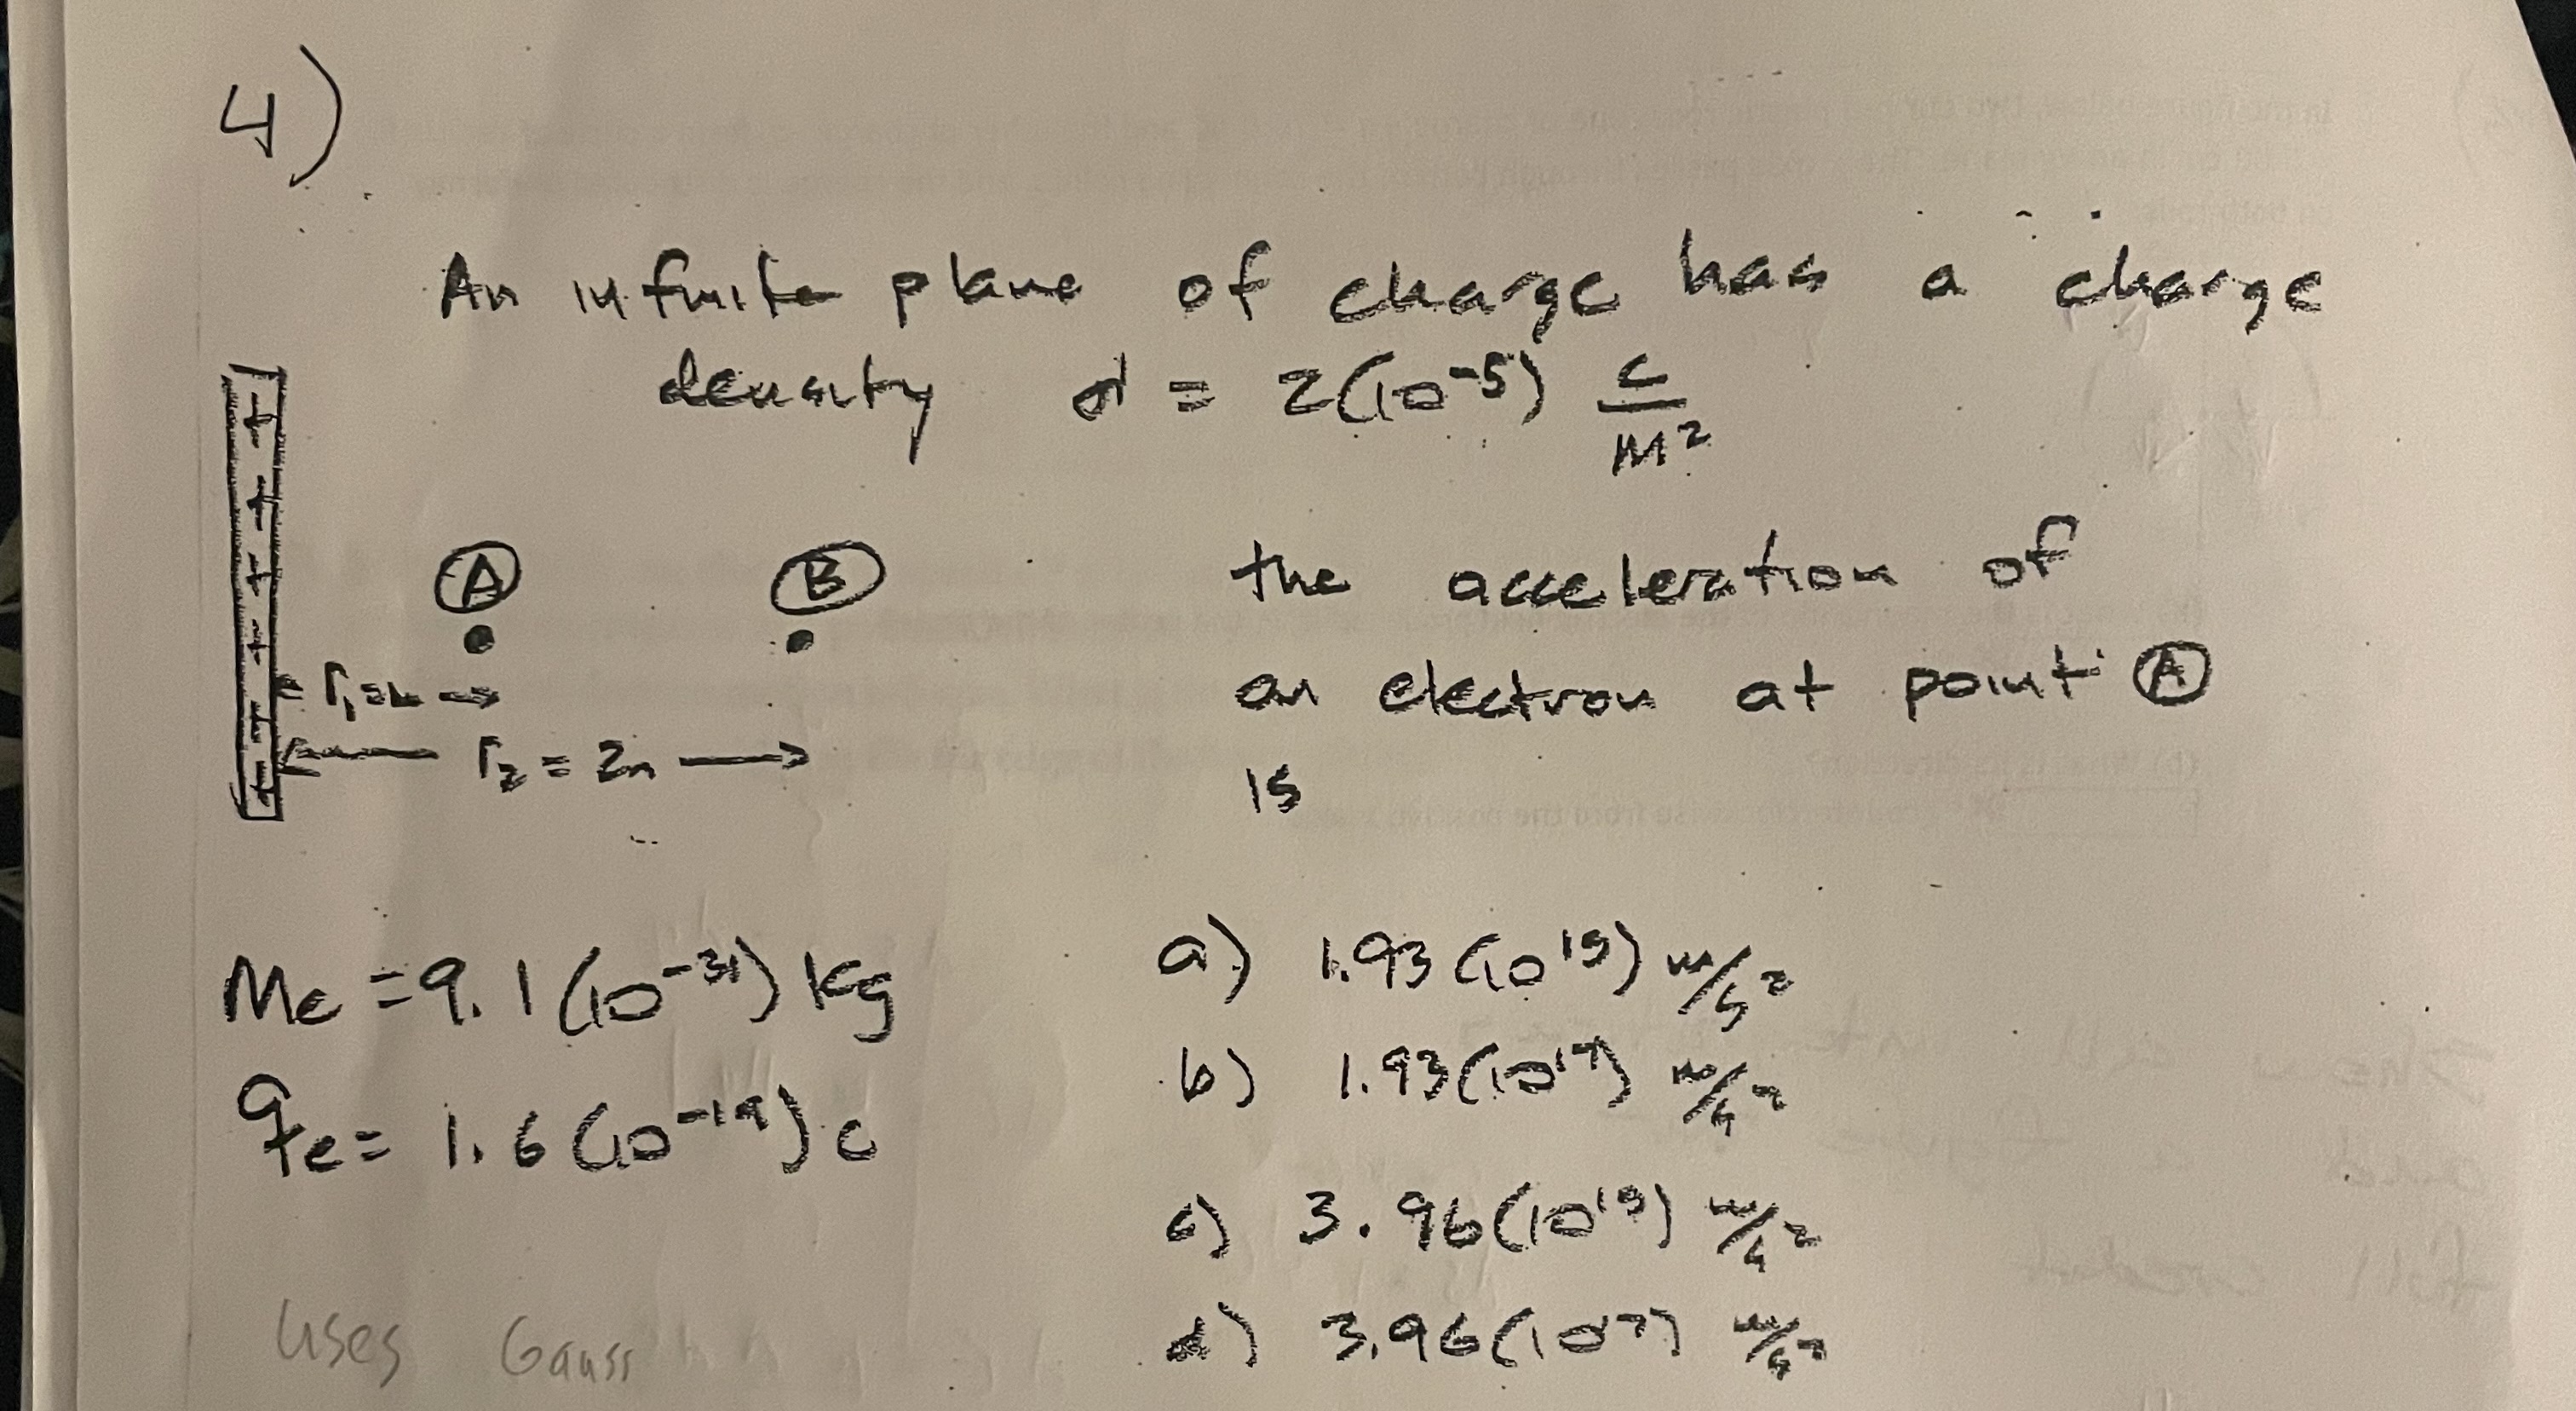 4)
An infinite plane of charge has a charge
density σ = 2(10⁻⁵) C/m²
+ + + + + + +
Ⓐ Ⓑ
the acceleration of
r₁ = →
an electron at point Ⓐ
← r₂ = 2m →
is
Me = 9.1(10⁻³¹) kg
qe = 1.6(10⁻¹⁹) c
a) 1.93(10¹⁹) m/s²
b) 1.93(10¹⁷) m/s²
c) 3.96(10¹⁹) m/s²
d) 3.96( m/s²
Uses Gauss